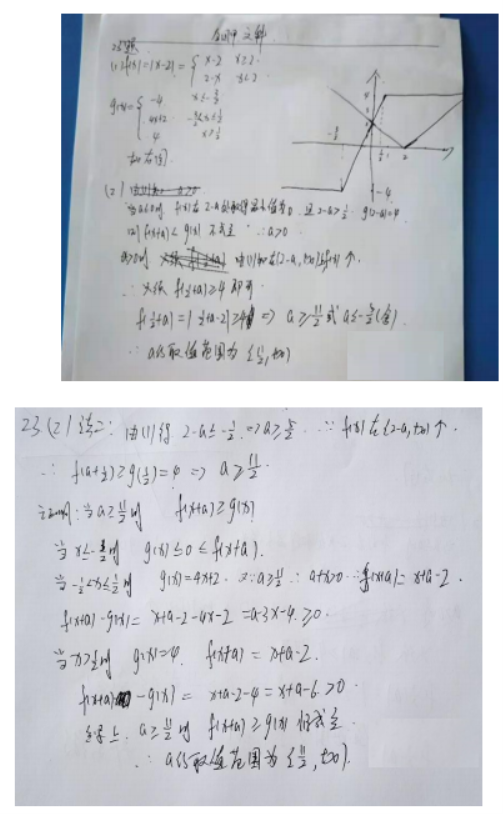 23题
(1) f(x)=|x-2|= { x-2 x≥2
2-x x<2
g(x)= { -4 x≤-3/2
4x+2
4 x≥1/2
如右图.
-3/2 1/2 2 -4
(2)
当a≤0时 f(x)在2-a处取得最小值为0. 且2-a>1/2. g(2-a)=4
∴a>0
a>0时 由(1)知在[2-a,+∞)上f(x)↑.
∴ 只须 f(1/2+a)≥4 即可
f(1/2+a)=|1/2+a-2|≥4 => a≥11/2 或 a≤-5/2(舍)
∴ a的取值范围为 [11/2,+∞)
23(2)法二: 由(1)得 2-a≤-1/2 => a≥5/2 ∵ f(x)在[2-a,+∞)↑.
∴ f(a+1/2)≥g(1/2)=4 => a≥11/2.
证明: 当a≥11/2时 f(x+a)≥g(x)
g(x)≤0≤f(x+a).
g(x)=4x+2. 又∵a≥11/2 ∴a+x>0 ∴f(x+a)=x+a-2.
f(x+a)-g(x)= x+a-2-4x-2 =a-3x-4≥0.
g(x)=4. f(x+a)=x+a-2.
f(x+a)-g(x)= x+a-2-4=x+a-6>0.
综上. a≥11/2时 f(x+a)≥g(x) 恒成立.
∴ a的取值范围为 [11/2,+∞).